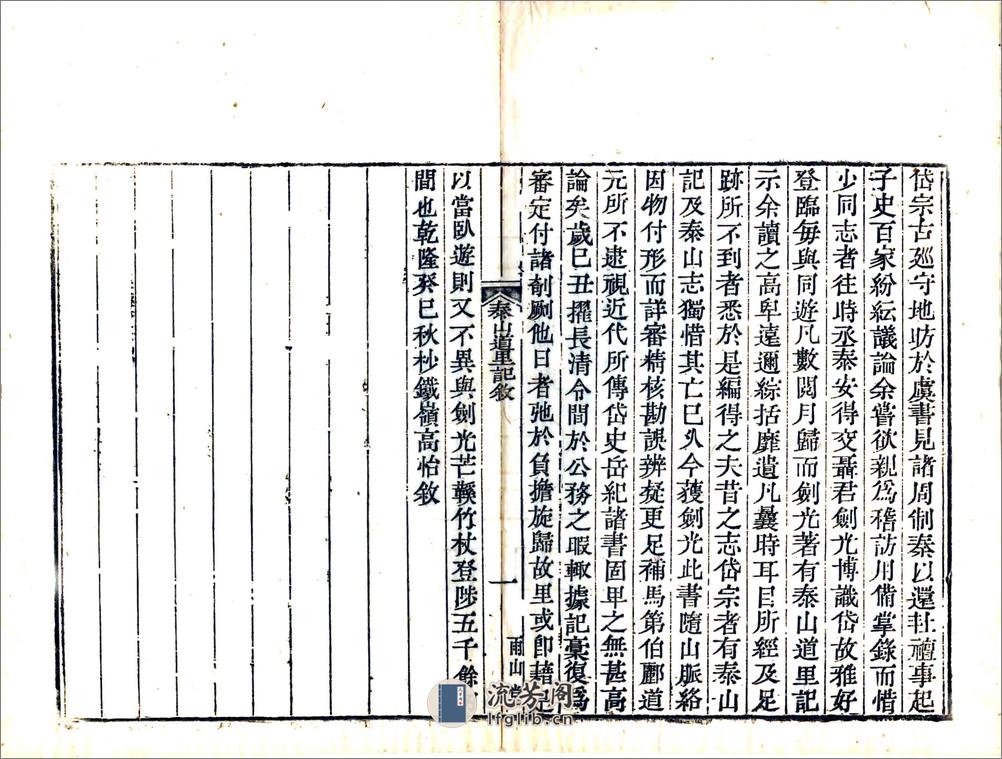 岱宗古廵守地昉於虞書見諸周制秦以還封禪事起
子史百家紛紜議論余嘗欲親爲稽訪用備掌錄而惜
少同志者往時丞泰安得交聶君劍光博識岱故雅好
登臨每與同遊凡數閱月歸而劍光著有泰山道里記
示余讀之高卑遠邇綜括靡遺凡曩時耳目所經及足
跡所不到者悉於是編得之夫昔之志岱宗者有泰山
記及泰山志獨惜其亡已久今獲劍光此書隨山脈絡
因物付形而詳審精核勘誤辨疑更足補馬第伯酈道
元所不逮視近代所傳岱史岳紀諸書固卑之無甚高
論矣歲己丑擢長清令間於公務之暇輙據記槀復爲
審定付諸剞劂他日者弛於負擔旋歸故里或卽藉
泰山道里記敘
一
雨山
以當臥遊則又不異與劍光芒鞵竹杖登陟五千餘
間也乾隆癸巳秋杪鐵嶺高怡敘
流芳阁
lfglib.cn